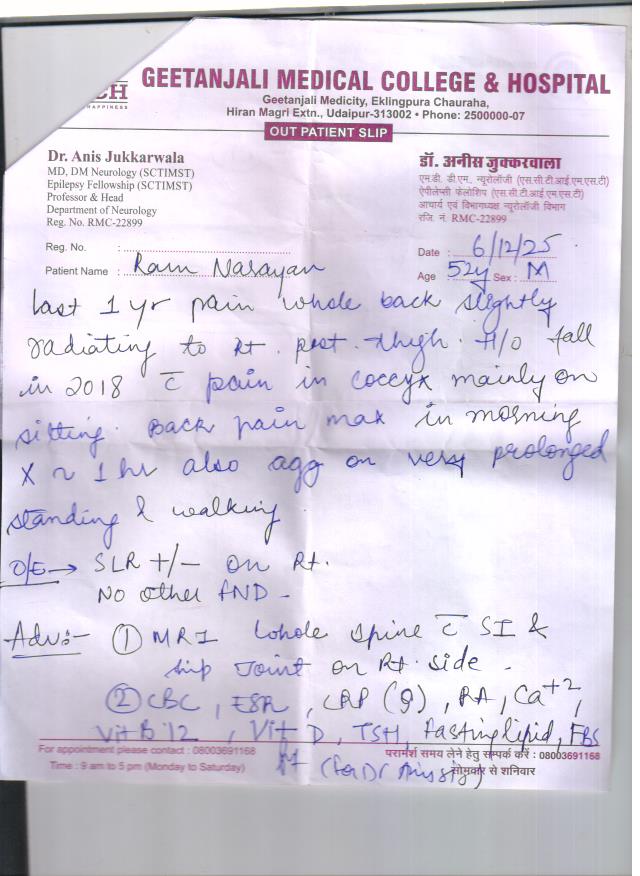 CH
HAPPINESS
GEETANJALI MEDICAL COLLEGE & HOSPITAL
Geetanjali Medicity, Eklingpura Chauraha,
Hiran Magri Extn., Udaipur-313002 • Phone: 2500000-07
OUT PATIENT SLIP
Dr. Anis Jukkarwala
MD, DM Neurology (SCTIMST)
Epilepsy Fellowship (SCTIMST)
Professor & Head
Department of Neurology
Reg. No. RMC-22899
डॉ. अनीस जुक्करवाला
एम.डी. डी.एम., न्यूरोलॉजी (एस.सी.टी.आई.एम.एस.टी)
ऐपीलेप्सी फेलोशिप (एस.सी.टी.आई.एम.एस.टी)
आचार्य एवं विभागध्यक्ष न्यूरोलॉजी विभाग
रजि. नं. RMC-22899
Reg. No. :
Date : 6/12/25
Patient Name : Ram Narayan
Age 52y Sex : M
last 1 yr pain whole back slightly
radiating to Rt. post. thigh. H/o fall
in 2018 c̄ pain in coccyx mainly on
sitting. Back pain max in morning
X ~ 1 hr also agg on very prolonged
standing & walking.
O/E → SLR +/- on Rt.
No other FND -
Adv:- ① MRI whole spine c̄ SI &
hip joint on Rt. side -
② CBC, ESR, CRP (Q), RA, Ca+2,
Vit B12, Vit D, TSH, Fasting lipid, FBS
For appointment please contact : 08003691168
Time : 9 am to 5 pm (Monday to Saturday)
परामर्श समय लेने हेतु सम्पर्क करें : 08003691168
सोमवार से शनिवार
(for Dr Anis